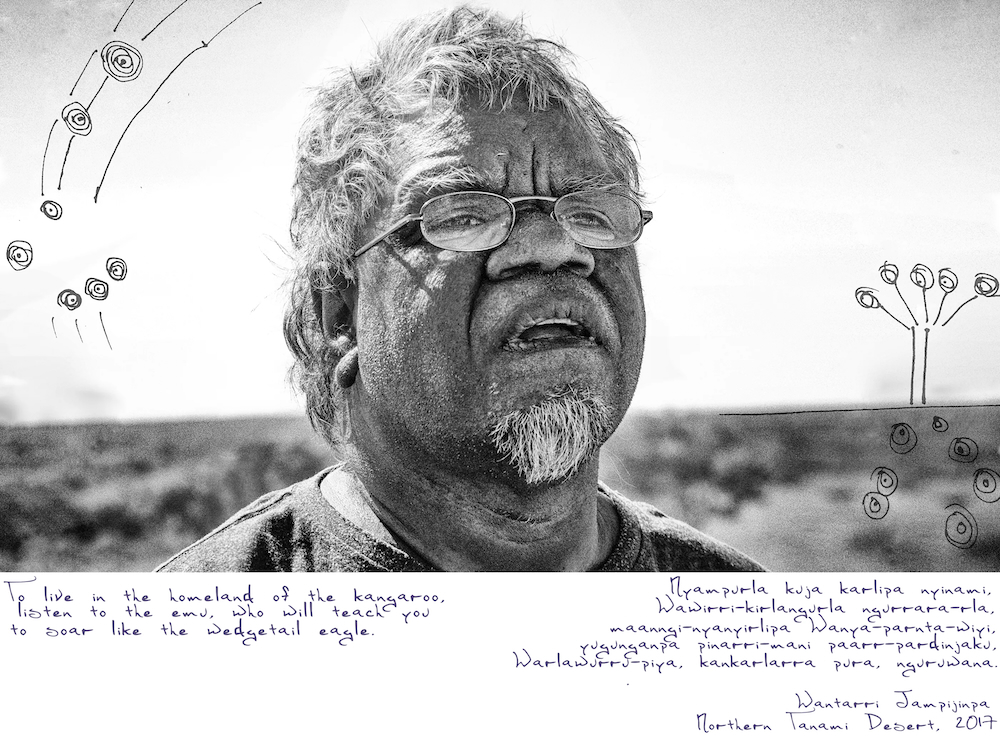 To live in the homeland of the kangaroo,
listen to the emu, who will teach you
to soar like the wedgetail eagle.
Nyampurla kuja karlipa nyinami,
Wawirri-kirlangurla ngurrara-rla,
maanngi-nyanyirlipa Wanya-parnta-wiyi,
yugunganpa pinarri-mani paarr-pardinjaku,
Warlawurru-piya, kankarlarra pura, nguruwana.
Wantarri Jampijinpa
Northern Tanami Desert, 2017